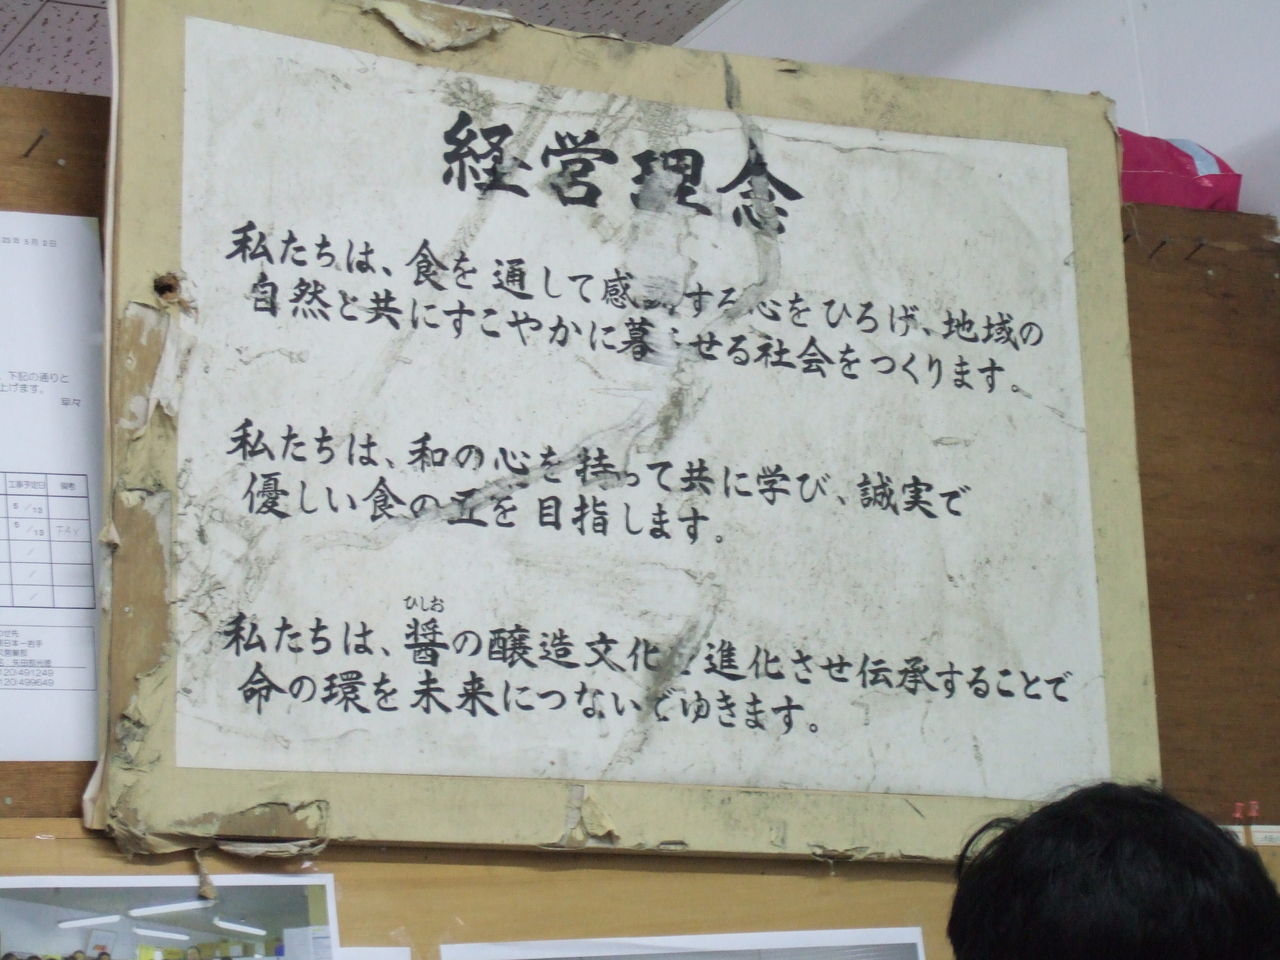 経営理念
私たちは、食を通して感する心をひろげ、地域の
自然と共にすこやかに暮せる社会をつくります。
私たちは、和の心を持って共に学び、誠実で
優しい食の匠を目指します。
ひしお
私たちは、醤の醸造文化進化させ伝承することで
命の環を未来につないでゆきます。
下記の通りと
上げます。
早々
工事予定日 備考
5/13
5/13
120)491249
120)499649